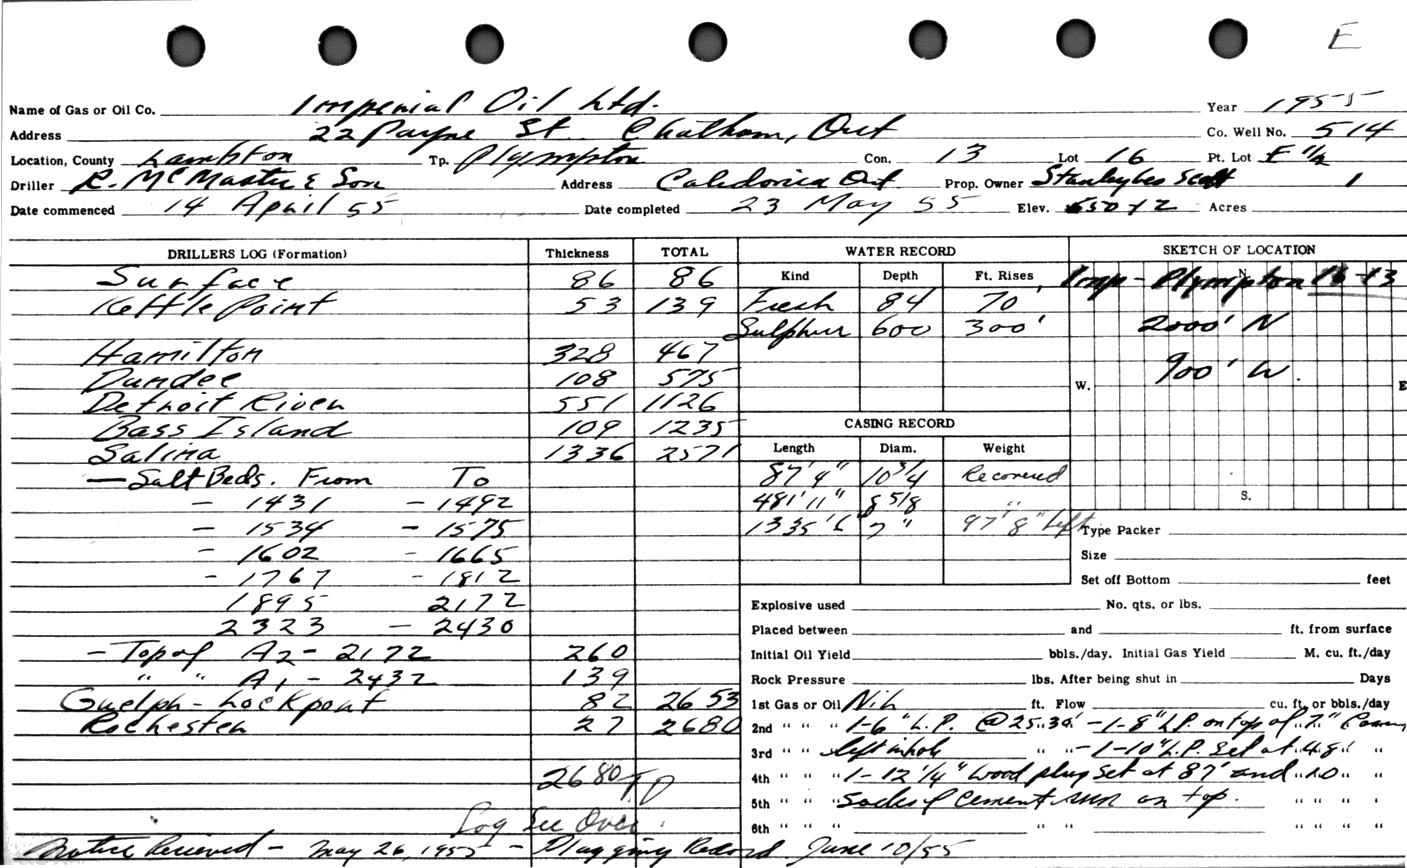 E
Name of Gas or Oil Co. Imperial Oil Ltd. Year 1955
Address 22 Payne St. Chatham, Ont Co. Well No. 514
Location, County Lambton Tp. Plympton Con. 13 Lot 16 Pt. Lot E 1/2
Driller R. McMaster & Son Address Caledonia Ont Prop. Owner Scott 1
Date commenced 14 April 55 Date completed 23 May 55 Elev. 650+2 Acres
DRILLERS LOG (Formation) Thickness TOTAL WATER RECORD SKETCH OF LOCATION
Kind Depth Ft. Rises N
Surface 86 86 Imp - Plympton 16-13
Kettle Point 53 139 Fresh 84 70
Sulphur 600 300' 2000' N
Hamilton 328 467 900' W.
Dundee 108 575 W. E
Detroit River 551 1126
Bass Island 109 1235 CASING RECORD
Salina 1336 2571 Length Diam. Weight
- Salt Beds. From To 87'9" 10 3/4 Recovered
- 1431 - 1492 481'11" 8 5/8 " S.
- 1534 - 1575 1335' 7" 97'8" Left Type Packer
- 1602 - 1665 Size
- 1767 - 1812 Set off Bottom feet
1895 2172 Explosive used No. qts. or lbs.
2323 - 2430 Placed between and ft. from surface
- Top of A2 - 2172 260 Initial Oil Yield bbls./day. Initial Gas Yield M. cu. ft./day
" " A1 - 2432 139 Rock Pressure lbs. After being shut in Days
Guelph - Lockport 82 2653 1st Gas or Oil Nil ft. Flow cu. ft. or bbls./day
Rochester 27 2680 2nd " " " 1-6" L.P. @ 2530' - 1-8" L.P. on top of 7" Casing
3rd " " left in hole " " - 1-10" L.P. set at 481 " "
2680 TD 4th " " " 1-12 1/4" wood plug set at 87' and 10 " "
5th " " " Sacks of cement run on top. " " " "
Log See Over. 6th " " " " " " " " "
Notice Recieved - May 26, 1955 - Plugging Record June 10/55